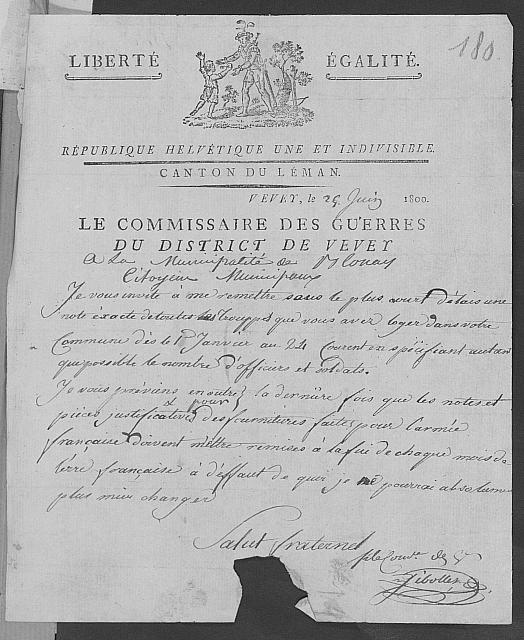 180
LIBERTÉ ÉGALITÉ.
RÉPUBLIQUE HELVÉTIQUE UNE ET INDIVISIBLE.
CANTON DU LÉMAN.
VEVEY, le 25 Juin 1800.
LE COMMISSAIRE DES GUERRES
DU DISTRICT DE VEVEY
A La Municipalité de Blonay
Citoyens Municipaux
Je vous invite a me remettre sans le plus court délais une
note exacte de toutes les trouppes que vous avez loger dans votre
Commune dès le 1r Janvier au 24 Courent en spécifiant autant
que possible le nombre d'officiers et soldats.
Je vous préviens en outre & pour la dernière fois que les notes et
pièces justificatives des fournitures faites pour l'armée
française doivent m'être remises à la fin de chaque mois de
l'ère française à deffaut de quoi je ne pourrai absolument
plus m'en changer
Salut fraternel